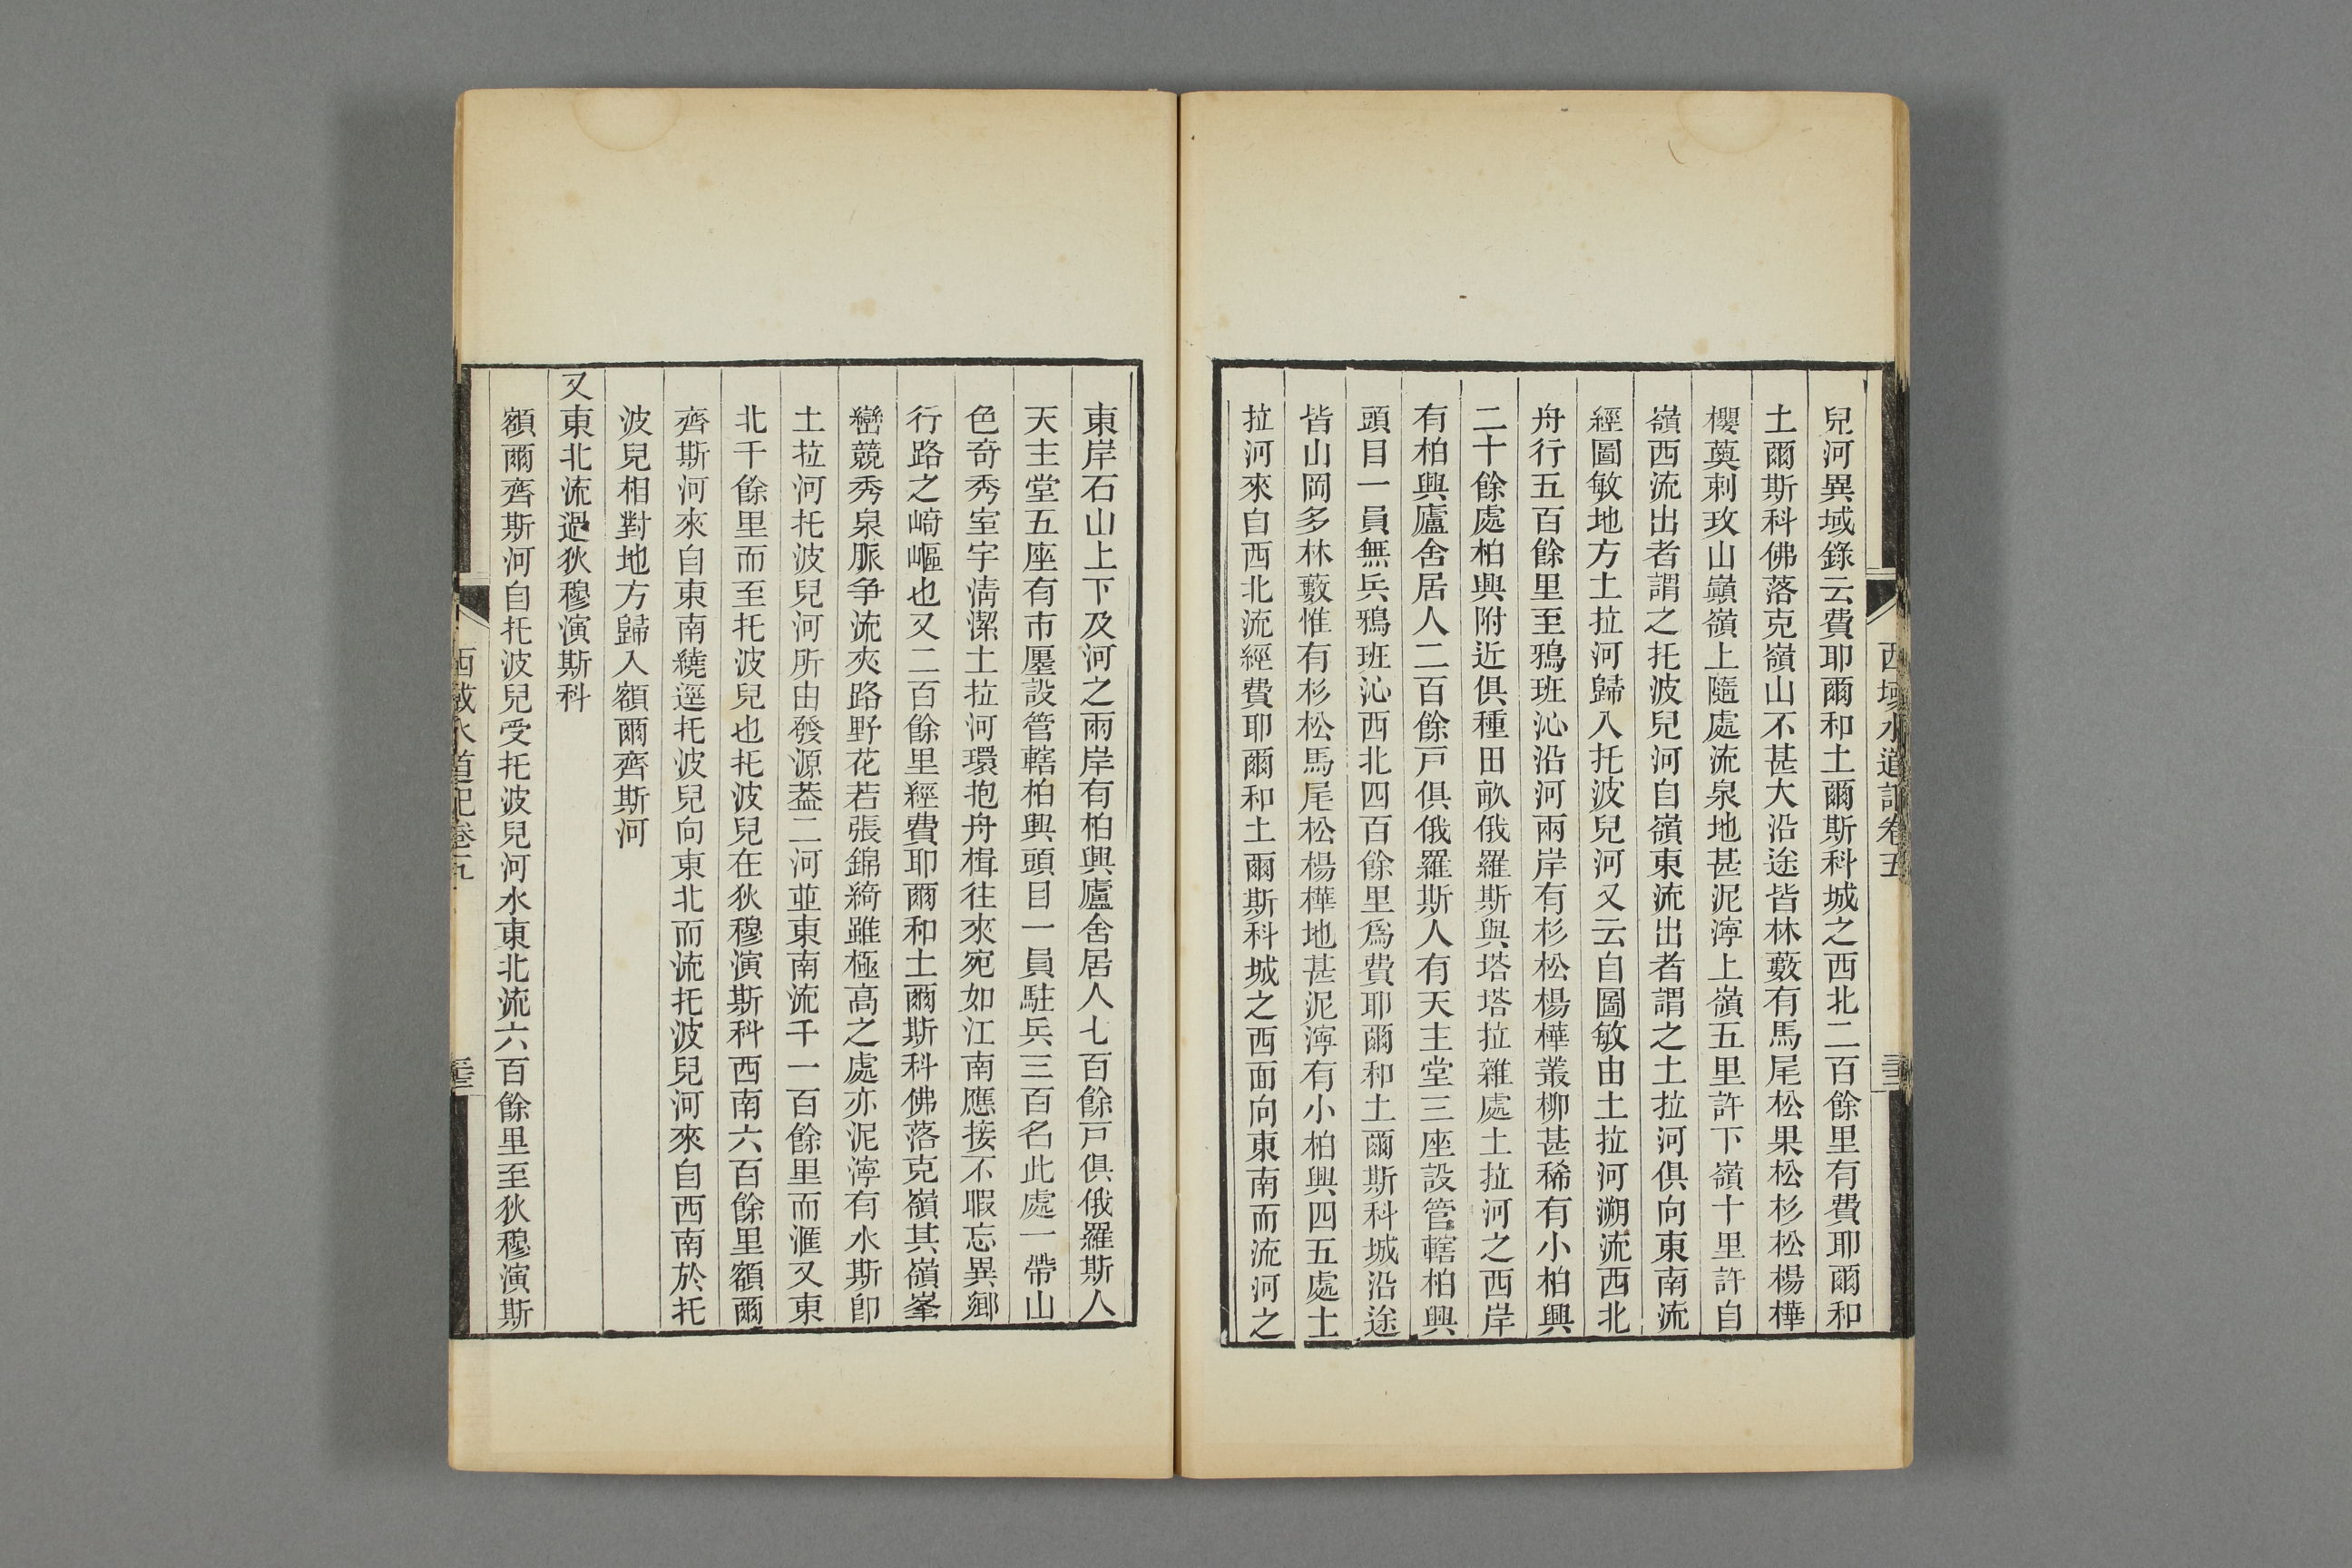 西域水道記卷五
兒河異域錄云費耶爾和土爾斯科城之西北二百餘里有費耶爾和
土爾斯科佛落克嶺山不甚大沿途皆林藪有馬尾松果松杉松楊樺
櫻薁刺玫山巔嶺上隨處流泉地甚泥濘上嶺五里許下嶺十里許自
嶺西流出者謂之托波兒河自嶺東流出者謂之土拉河俱向東南流
經圖敏地方土拉河歸入托波兒河又云自圖敏由土拉河溯流西北
舟行五百餘里至鴉班沁沿河兩岸有杉松楊樺叢柳甚稀有小柏興
二十餘處柏興附近俱種田畝俄羅斯與塔塔拉雜處土拉河之西岸
有柏興廬舍居人二百餘戸俱俄羅斯人有天主堂三座設管轄柏興
頭目一員無兵鴉班沁西北四百餘里爲費耶爾和土爾斯科城沿途
皆山岡多林藪惟有杉松馬尾松楊樺地甚泥濘有小柏興四五處土
拉河來自西北流經費耶爾和土爾斯科城之西面向東南而流河之
東岸石山上下及河之兩岸有柏興廬舍居人七百餘戸俱俄羅斯人
天主堂五座有市廛設管轄柏興頭目一員駐兵三百名此處一帶山
色奇秀室宇淸潔土拉河環抱舟楫往來宛如江南應接不暇忘異鄉
行路之崎嶇也又二百餘里經費耶爾和土爾斯科佛落克嶺其嶺峯
巒競秀泉脈爭流夾路野花若張錦綺雖極高之處亦泥濘有水斯卽
土拉河托波兒河所由發源葢二河並東南流千一百餘里而滙又東
北千餘里而至托波兒也托波兒在狄穆演斯科西南六百餘里額爾
齊斯河來自東南繞逕托波兒向東北而流托波兒河來自西南於托
波兒相對地方歸入額爾齊斯河
又東北流過狄穆演斯科
額爾齊斯河自托波兒受托波兒河水東北流六百餘里至狄穆演斯
西域水道記卷五